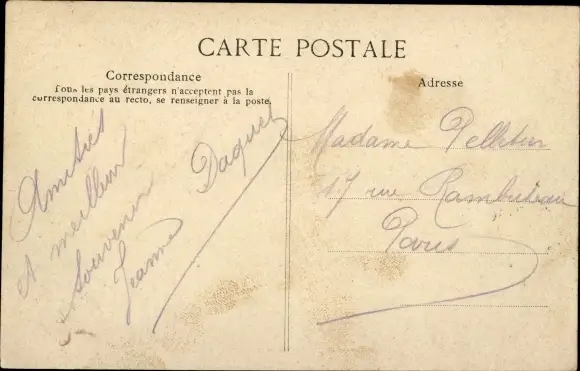 CARTE POSTALE
Correspondance
Tous les pays étrangers n'acceptent pas la
correspondance au recto, se renseigner à la poste.
Adresse
Amitiés
et meilleur
souvenir
Jeanne
Daquet
Madame Pelletier
17 rue Rambuteau
Paris